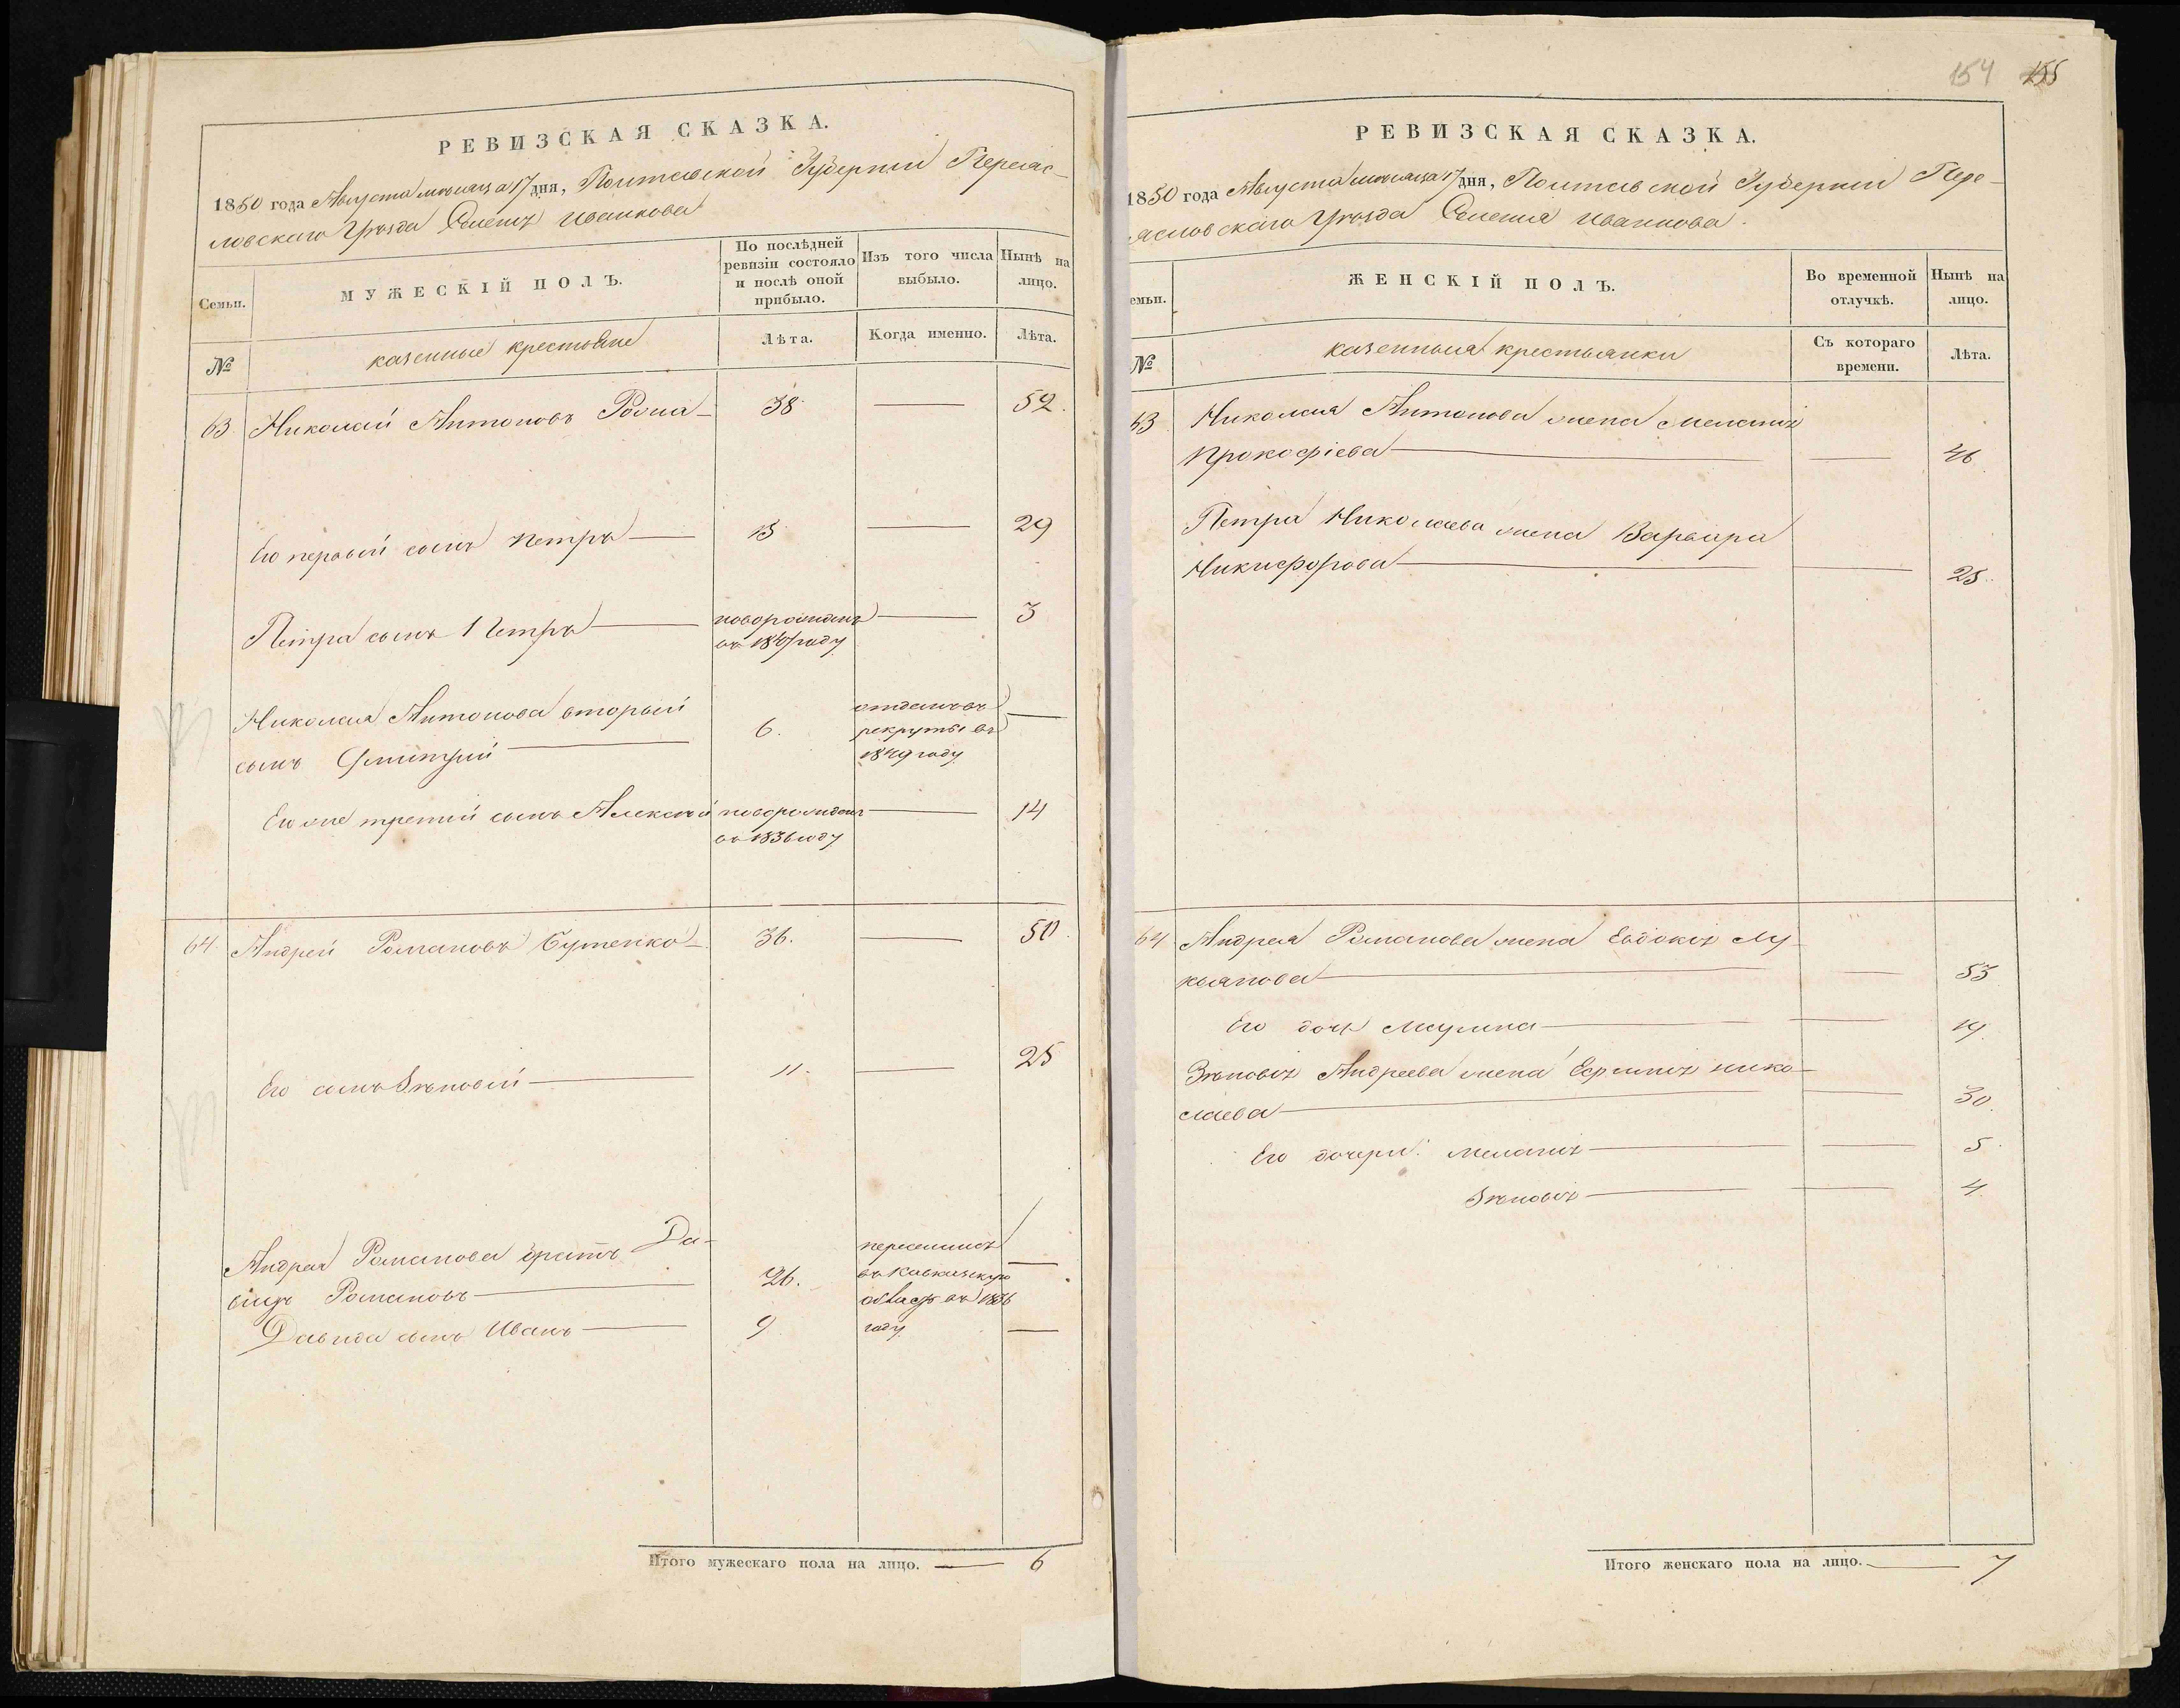 РЕВИЗСКАЯ СКАЗКА.
1850 года Августа месяца 17 дня, Полтавской Губерніи Переяс-
ловскаго Уѣзда Селенія Иванкова
Семьи.
МУЖЕСКІЙ ПОЛЪ.
По послѣдней ревизіи состояло и послѣ оной прибыло.
Изъ того числа выбыло.
Нынѣ на лицо.
№
казенные крестьяне
Лѣта.
Когда именно.
Лѣта.
63. Николай Антоновъ 38 — 52.
Его первый сынъ Петръ — 15 — 29
Петра сынъ Петръ — новорожденъ — 3
въ 1847 году
Николая Антонова вторый
сынъ Дмитрий — 6. отданъ въ —
рекруты въ
1849 году
Его же третий сынъ Алексей новорожденъ — 14
въ 1836 году
64. Андрей Романовъ Бутенко — 36. — 50.
Его сынъ Зѣновій — 11. — 25
Андрея Романова братъ Да-
видъ Романовъ — 26. переселился —
въ Кавказскую
область въ 1836
Давида сынъ Иванъ — 9 году —
Итого мужескаго пола на лицо. — 6
154 155
РЕВИЗСКАЯ СКАЗКА.
1850 года Августа месяца 17 дня, Полтавской Губерніи Пере-
ясловскаго Уѣзда Селенія Иванкова.
емьи.
ЖЕНСКІЙ ПОЛЪ.
Во временной отлучкѣ.
Нынѣ на лицо.
№
казенныя крестьянки
Съ котораго времени.
Лѣта.
63. Николая Антонова жена Меланія
Прокофіева — — 46.
Петра Николаева жена Варвара
Никифорова — — 25.
64. Андрея Романова жена Евдокія Лу-
кьянова — — 53
Его дочь — — 19.
Зѣновія Андреева жена Нико-
лаева — — 30.
Его дочери: Меланія — — 5.
Зѣновія — — 4.
Итого женскаго пола на лицо. — 7